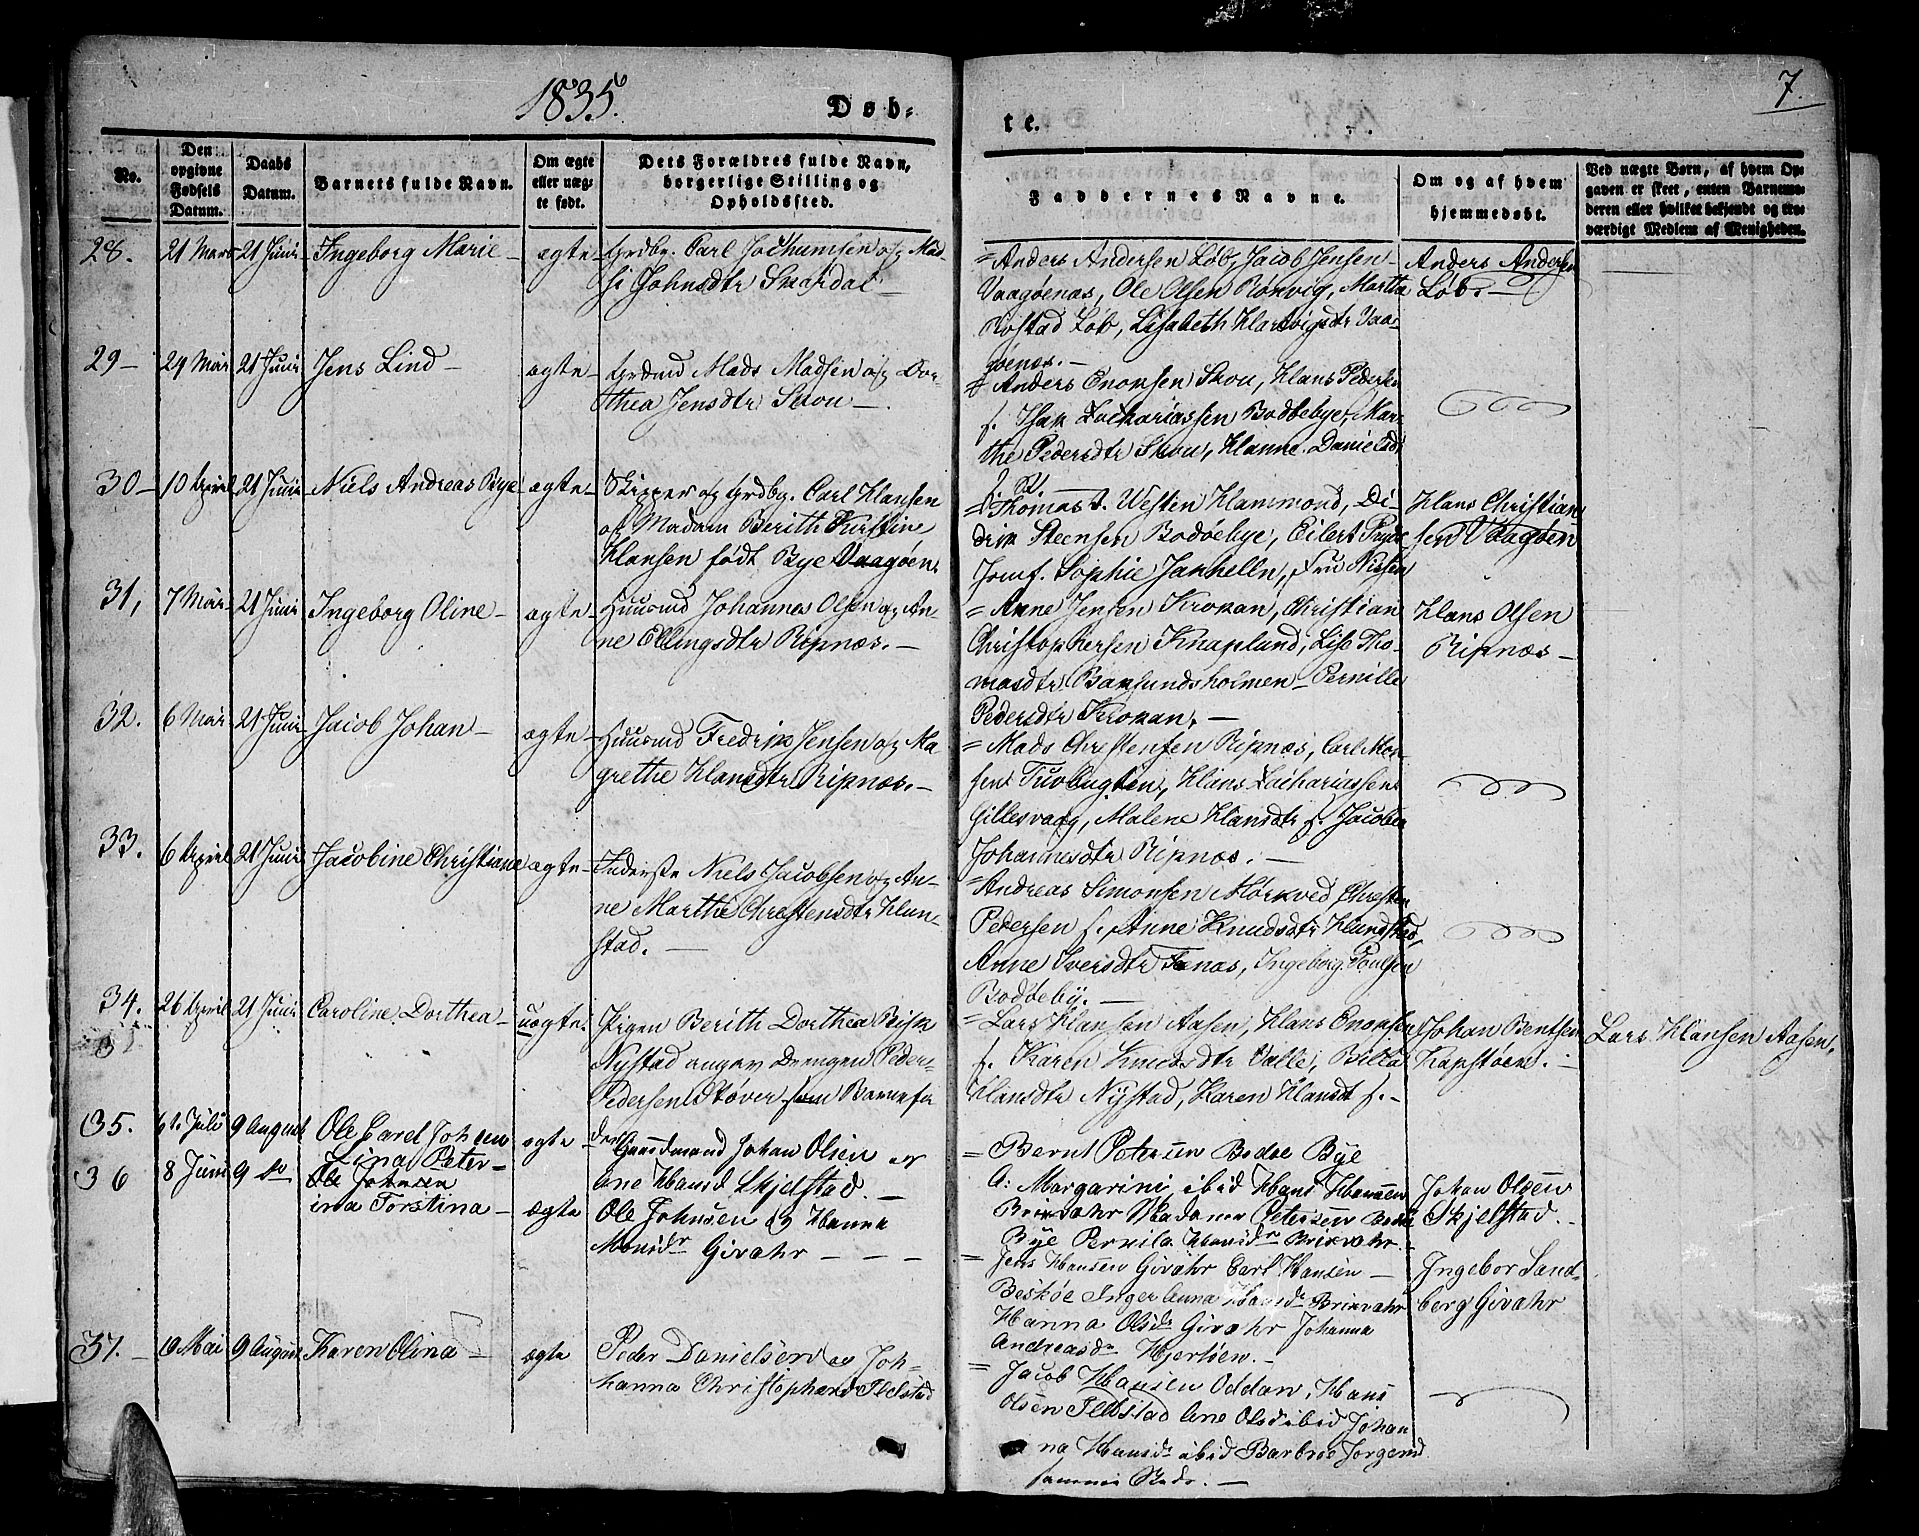 1835.
Døb-
te.
7
No.
Den opgivne Fødsels Datum.
Daabs Datum.
Barnets fulde Navn.
Om ægte eller uæg-te født.
Dets Forældres fulde Navn, borgerlige Stilling og Opholdssted.
Faddernes Navne.
Om og af hvem hjemmedøbt.
Ved uægte Børn, af hvem Op-gaven er skeet, enten Barnemo-deren eller hvilket bekjendt og tro-værdigt Medlem af Menigheden.
28. 21 Marts 21 Juni Ingeborg Marie – ægte – Grdbg. Carl Jochumsen og Mad-
si Johnsdtr Snordal –
= Anders Andersen Løb, Jacob Jensen
Vaagøenæs, Ole Olsen Rønvig, Martha
Rostad Løb, Lisabeth Hartvigsdtr Vaa-
gøenæs. –
Anders Andersen
Løb. –
29 – 29 Mar 21 Juni Jens Lind – ægte – Grdmd Mads Madsen og Dor-
thea Jensdtr Skou –
= Anders Enoksen Skou, Hans Peders
f. Isak Zachariassen Bodøebye, Mar-
the Pedersdtr Skou, Hanne Danielsdr
30 – 10 April 21 Juni Niels Andreas Bye ægte – Skipper og Grdbg. Carl Hansen
og Madam Berith Kirstine
Hansen født Bye Vaagøen.
= Thomas v. Westen Hammond, Di-
drik Steensen Bodøebye, Eilert Pryde
Jomf. Sophie Jantzelln, Fru Nissen
Hans Christian
sen Vaagøen
31, 7 Mar 21 Juni Ingeborg Oline – ægte – Huusmd Johannes Olsen og An-
ne Ellingsdtr Ripnæs. –
= Anne Jensen Krokan, Christian
Christophersen Knapland, Lise Tho-
masdtr Baksundsholmen – Pernille
Pedersdtr Krokan. –
Hans Olsen
Ripnæs –
32. 6 Mar 21 Juni Jacob Johan – ægte – Huusmd Fredrik Jensen og Ma
grethe Hansdtr Ripnæs. –
= Mads Christensen Ripnæs, Carl Mor-
sen Tuvlugten, Hans Zachariassen
Gillesvaag, Malene Hansdtr f. Jacobea
Johannesdtr Ripnæs. –
33. 6 April 21 Juni Jacobine Christiane ægte – Inderste Niels Jacobsen og An-
ne Marthe Christensdtr Hun-
stad. –
= Andreas Simonsen Mørkved Christen
Pedersen f. Anne Knudsdtr Hundstad,
Anne Iversdtr Fenæs, Ingeborg Poulsen
Bodøeby. –
34. 26 April 21 Juni Caroline Dorthea – uægte. Pigen Berith Dorthea Bisk
Nystad angav Drengen Peder
Pedersen Støver som Barnefa
der
= Lars Hansen Aasen, Hans Enoksen
f. Karen Knudsdtr Valle, Birtha
Hansdtr Nystad, Karen Hansdt f. –
Johan Bentsen
Kapstøen. –
Lars Hansen Aasen.
35. 6te Juli 9 August Ole Carel Johsen ægte Gaardmand Johan Olsen og
Ane Hansd Skjelstad. –
= Bernt Petersen Bodøe Bye
A: Margarini ibid Hans Hansen
Brixvahr Madame Petersen Bodø
Bye Pernila Hansdr Brixvahr.
Johan Olsen
Skjelstad. –
36 8 Juni 9 do Lina Peter-
Ole Johnsen
ina Torstina – ægte Ole Johnsen & Hanna
Monsdr Givahr – – –
= Jens Hansen Givahr Carl Hansen –
Beskøe Inger Anna Hansdr Brixvahr
Hanna Olsdr Givahr Johanna
Andreasdr Hjertøen. –
Ingebor Sand-
berg Givahr
37. – 10 Mai 9 August Karen Olina – ægte Peder Danielsen og Jo-
hanna Christophersd Ilstad
= Jacob Hansen Oddan, Hans
Olsen Ilstad Ane Olsd ibid Johan
na Hansdr ibid Barbroe Jørgensd
samme Sted. –